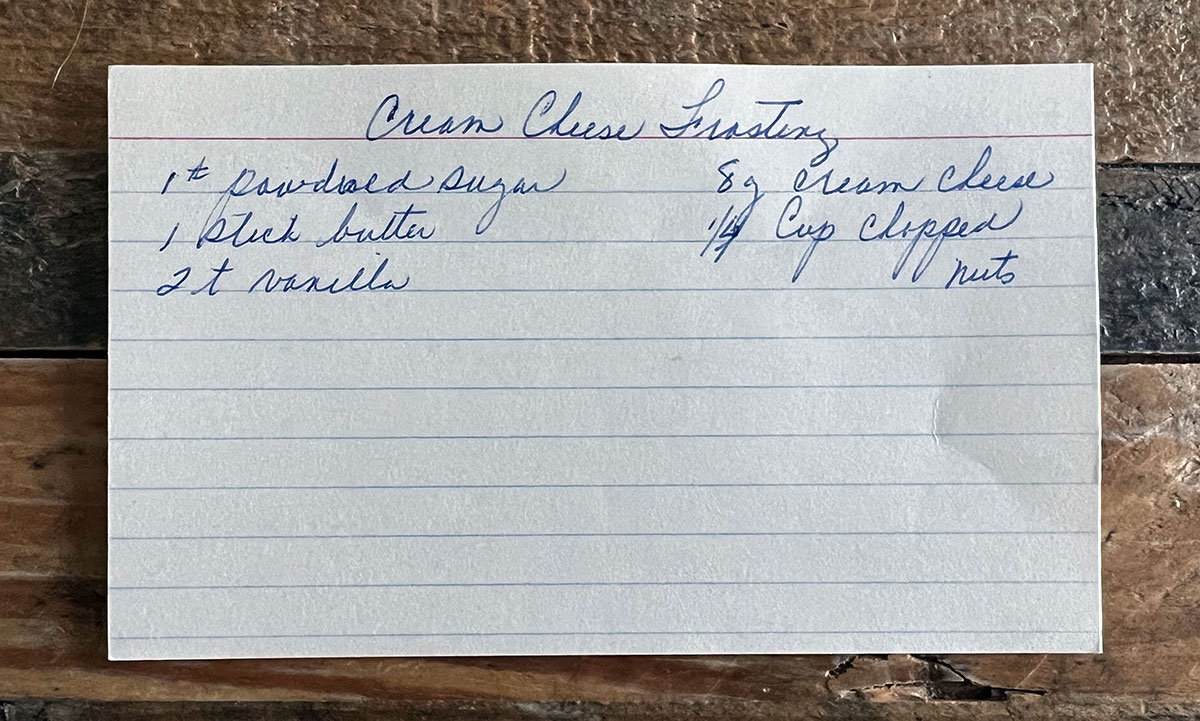 Cream Cheese Frosting
1# powdered sugar
8 z cream cheese
1 stick butter
1/4 Cup chopped
2 t vanilla
nuts